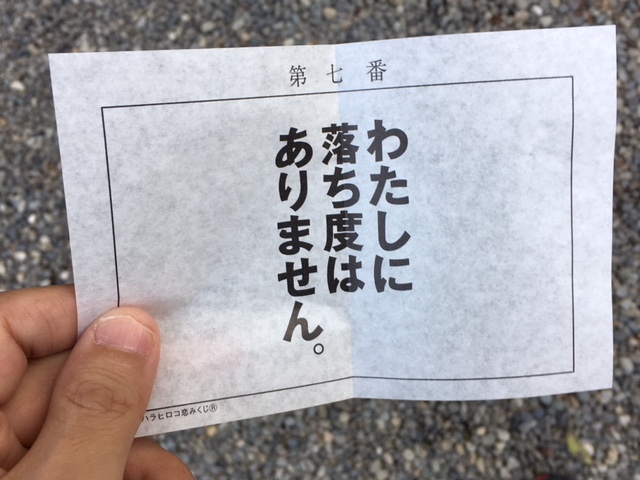 第七番
わたしに
落ち度は
ありません。
ハラヒロコ恋みくじ®